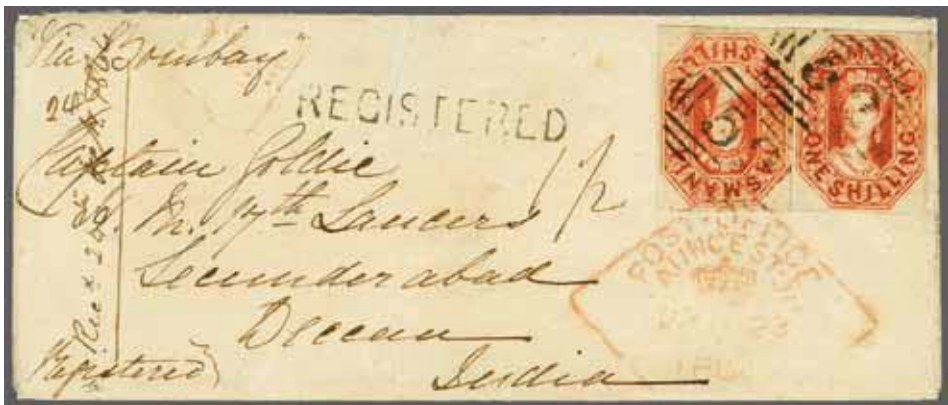 "Via Bombay"
REGISTERED
Captain Goldie
H.M. 17th Lancers
1/2
Secunderabad
Deccan
India
Registered
Recd
24
SHILLI
TASMANI
MANIA
ONE SHILLING
POST OFFICE
LAUNCESTON
23